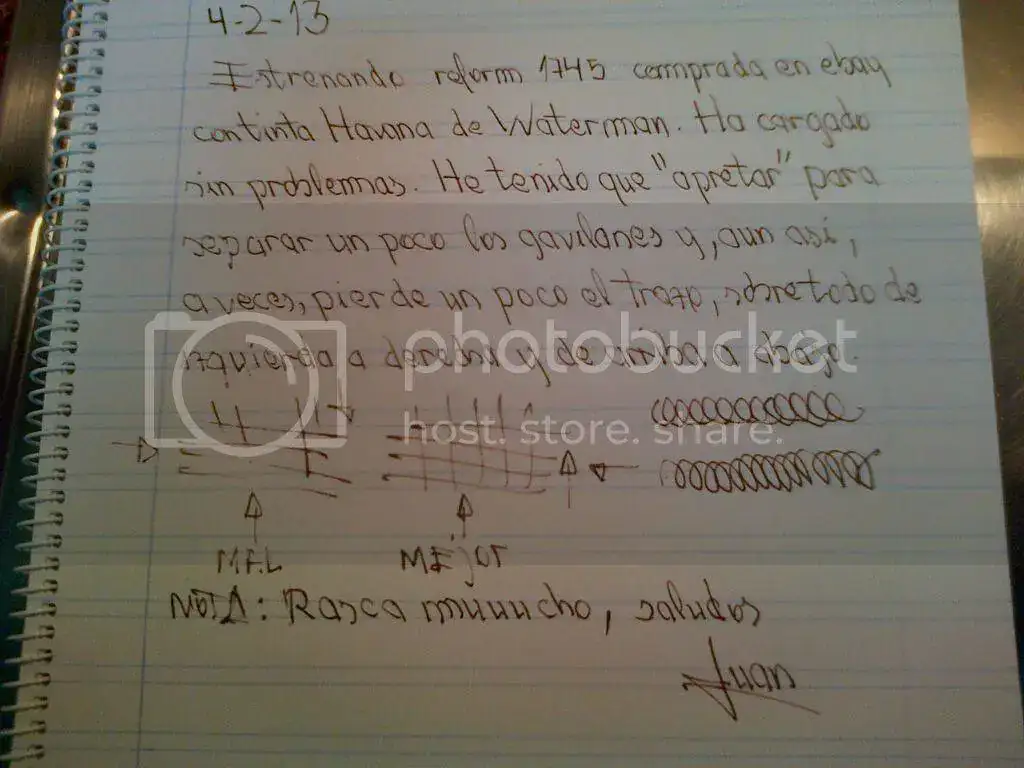 4-2-13
Estrenando reform 1745 comprada en ebay
con tinta Havana de Waterman. Ha cargado
sin problemas. He tenido que "apretar" para
separar un poco los gavilanes y, aun así,
a veces, pierde un poco el trazo, sobre todo de
izquierda a derecha y de arriba a abajo.
photobucket
host. store. share.
MAL MEjor
NOTA: Rasca muuucho, saludos
Juan